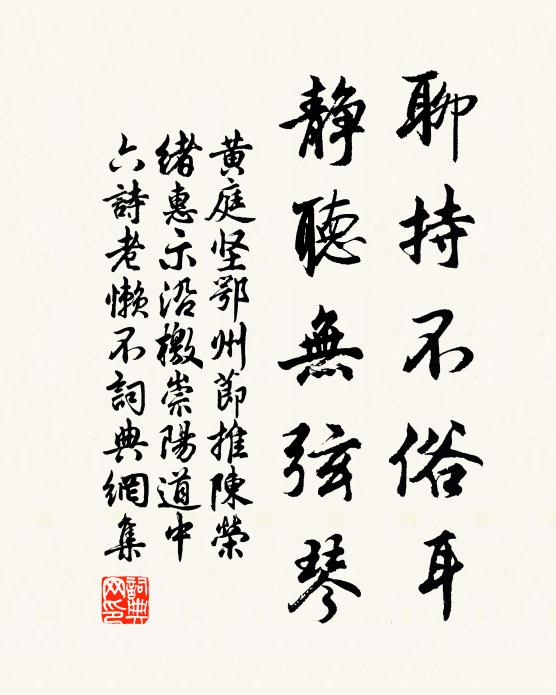 聊持不俗耳
靜聽無弦琴
黃庭坚鄂州節推陳榮
緒惠示沿檄崇陽道中
六詩老懒不詞典網集
詞典網印